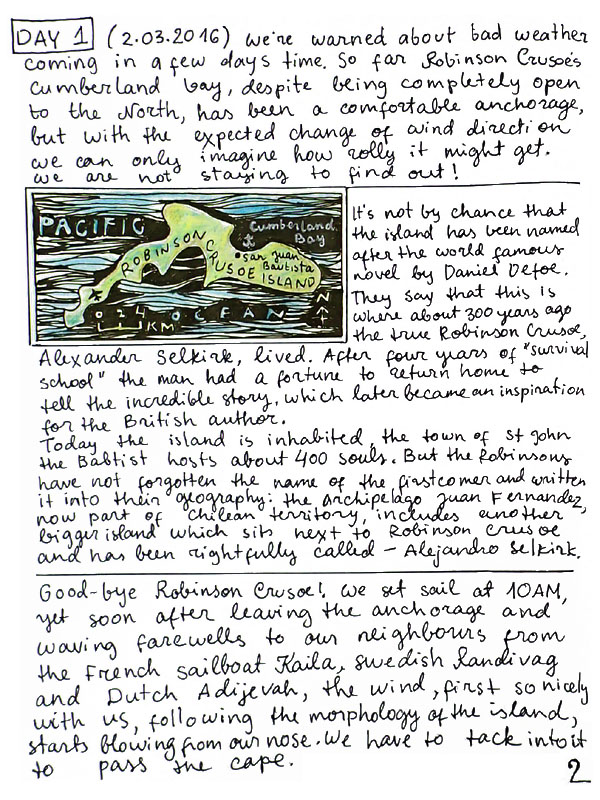 DAY 1 (2.03.2016) we're warned about bad weather
coming in a few days time. So far Robinson Crusoe's
Cumberland bay, despite being completely open
to the North, has been a comfortable anchorage,
but with the expected change of wind direction
we can only imagine how rolly it might get.
we are not staying to find out!
PACIFIC
Cumberland
Bay
ROBINSON CRUSOE ISLAND
San Juan
Bautista
0 2 4
KM
OCEAN
N
It's not by chance that
the island has been named
after the world famous
novel by Daniel Defoe.
They say that this is
where about 300 years ago
the true Robinson Crusoe,
Alexander Selkirk, lived. After four years of "survival
school" the man had a fortune to return home to
tell the incredible story, which later became an inspiration
for the British author.
Today the island is inhabited, the town of St John
the Babtist hosts about 400 souls. But the Robinsons
have not forgotten the name of the firstcomer and written
it into their geography: the archipelago Juan Fernandez,
now part of Chilean territory, includes another
bigger island which sits next to Robinson Crusoe
and has been rightfully called – Alejandro Selkirk.
Good-bye Robinson Crusoe! We set sail at 10AM,
yet soon after leaving the anchorage and
waving farewells to our neighbours from
the French sailboat Kaila, swedish Randivag
and Dutch Adijevah, the wind, first so nicely
with us, following the morphology of the island,
starts blowing from our nose. We have to tack into it
to pass the cape.
2